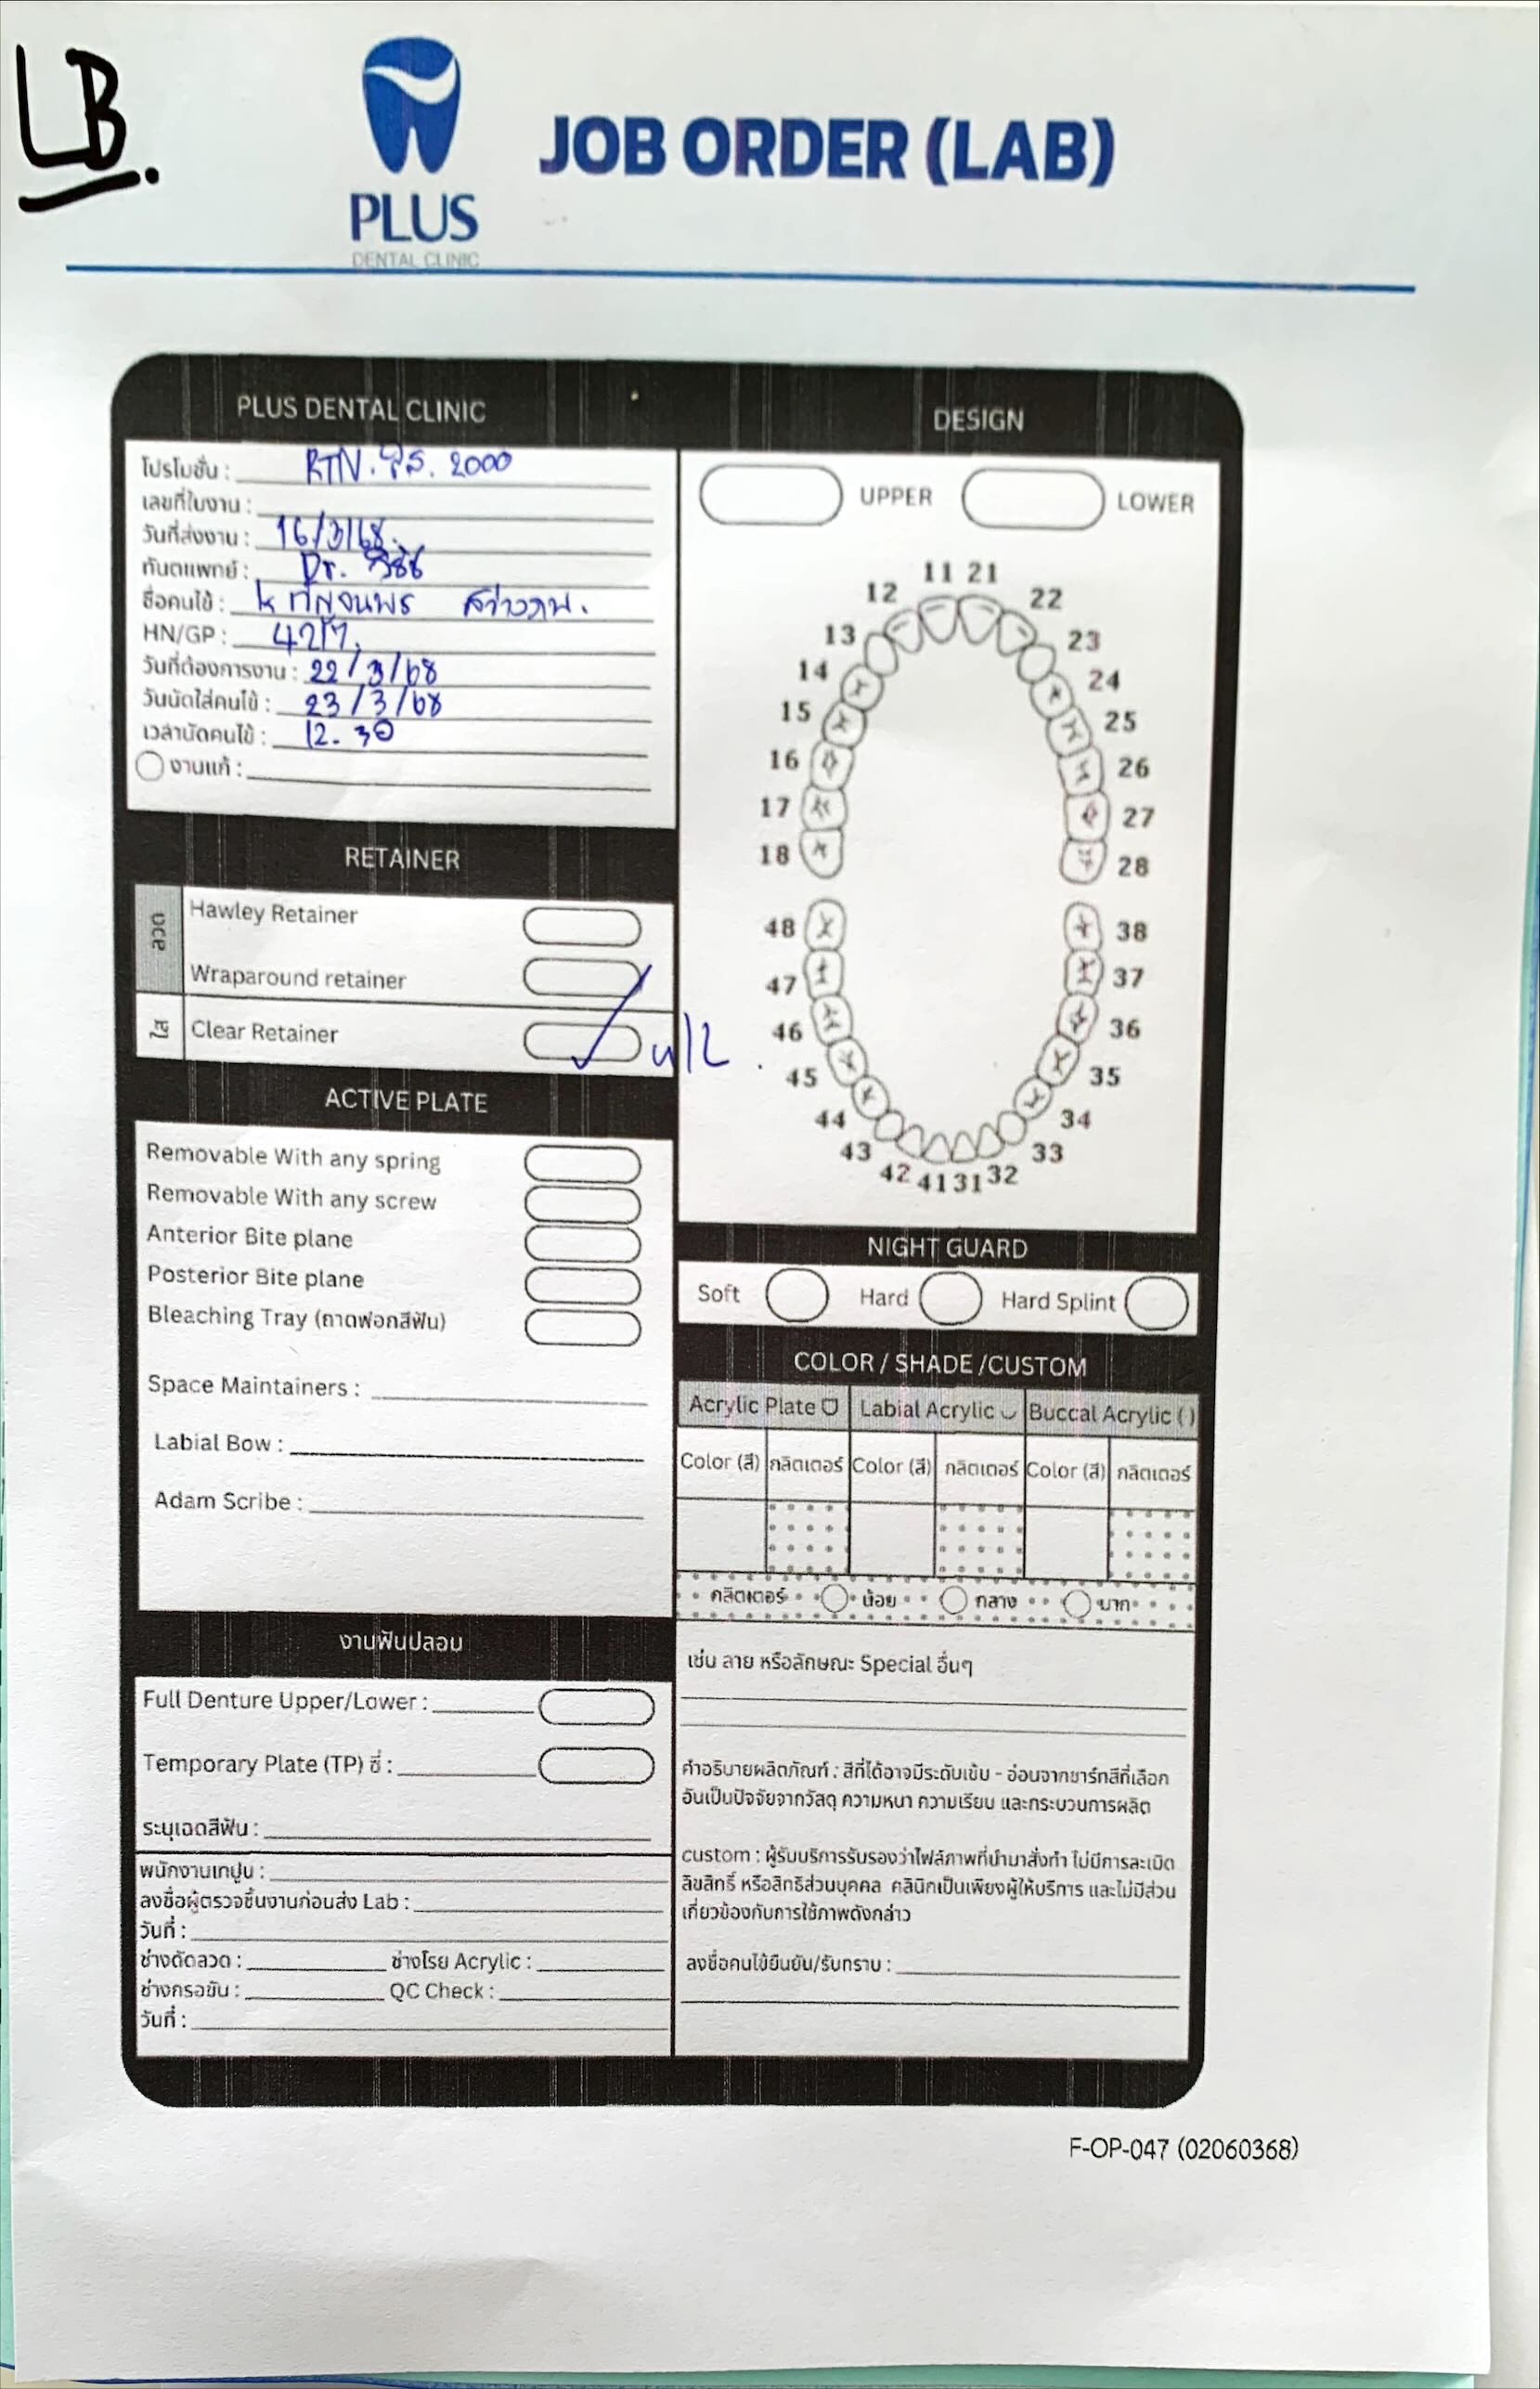 LB.
PLUS
DENTAL CLINIC
JOB ORDER (LAB)
PLUS DENTAL CLINIC
โปรโมชั่น : RTN. ใส. 2000
เลขที่ใบงาน :
วันที่ส่งงาน : 16/3/68.
ทันตแพทย์ : Dr.
ชื่อคนไข้ :
HN/GP :
วันที่ต้องการงาน : 22/3/68
วันนัดใส่คนไข้ : 23/3/68
เวลานัดคนไข้ : 12.30
งานแก้ :
RETAINER
ลวด
Hawley Retainer
Wraparound retainer
ใส
Clear Retainer u/L.
ACTIVE PLATE
Removable With any spring
Removable With any screw
Anterior Bite plane
Posterior Bite plane
Bleaching Tray (ถาดฟอกสีฟัน)
Space Maintainers :
Labial Bow :
Adam Scribe :
งานฟันปลอม
Full Denture Upper/Lower :
Temporary Plate (TP) ซี่ :
ระบุเฉดสีฟัน :
พนักงานเทปูน :
ลงชื่อผู้ตรวจชิ้นงานก่อนส่ง Lab :
วันที่ :
ช่างดัดลวด : ช่างโรย Acrylic :
ช่างกรอขัน : QC Check :
วันที่ :
DESIGN
UPPER LOWER
11 21
12 22
13 23
14 24
15 25
16 26
17 27
18 28
48 38
47 37
46 36
45 35
44 34
43 33
42 41 31 32
NIGHT GUARD
Soft Hard Hard Splint
COLOR / SHADE /CUSTOM
Acrylic Plate Labial Acrylic Buccal Acrylic ( )
Color (สี) กลิตเตอร์ Color (สี) กลิตเตอร์ Color (สี) กลิตเตอร์
กลิตเตอร์ น้อย กลาง มาก
เช่น ลาย หรือลักษณะ Special อื่นๆ
คำอธิบายผลิตภัณฑ์ : สีที่ได้อาจมีระดับเข้ม - อ่อนจากชาร์ทสีที่เลือก
อันเป็นปัจจัยจากวัสดุ ความหนา ความเรียบ และกระบวนการผลิต
custom : ผู้รับบริการรับรองว่าไฟล์ภาพที่นำมาสั่งทำ ไม่มีการละเมิด
ลิขสิทธิ์ หรือสิทธิส่วนบุคคล คลินิกเป็นเพียงผู้ให้บริการ และไม่มีส่วน
เกี่ยวข้องกับการใช้ภาพดังกล่าว
ลงชื่อคนไข้ยืนยัน/รับทราบ :
F-OP-047 (02060368)